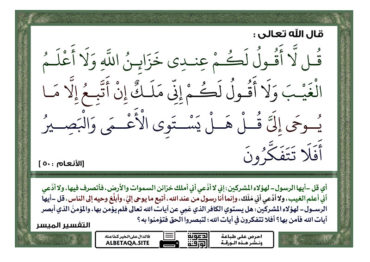 قال الله تعالى :
قُل لَّا أَقُولُ لَكُمْ عِندِى خَزَايِنُ اللَّهِ وَلَا أَعْلَمُ
الْغَيْبَ وَلَا أَقُولُ لَكُمْ إِنِّى مَلَكٌ إِنْ أَتَّبِعُ إِلَّا مَا
يُوحَى إِلَىَّ قُلْ هَلْ يَسْتَوِى الْأَعْمَى وَالْبَصِيرُ
أَفَلَا تَتَفَكَّرُونَ
[الأنعام : ٥٠]
أي قل -أيها الرسول- لهؤلاء المشركين: إني لا أدعي أني أملك خزائن السموات والأرض، فأتصرف فيها، ولا أدعي
أني أعلم الغيب، ولا أدعي أني ملك، وإنما أنا رسول من عند الله، أتبع ما يوحى إليّ، وأبلغ وحيه إلى الناس، قل -أيها
الرسول- لهؤلاء المشركين: هل يستوي الكافر الذي عمي عن آيات الله تعالى فلم يؤمن بها، والمؤمن الذي أبصر
آيات الله فآمن بها؟ أفلا تتفكرون في آيات الله؛ لتبصروا الحق فتؤمنوا به ؟
التفسير الميسر
احرص على طباعة
ونشر هذه الورقة
فالدال على الخير كفاعله
ALBETAQA.SITE